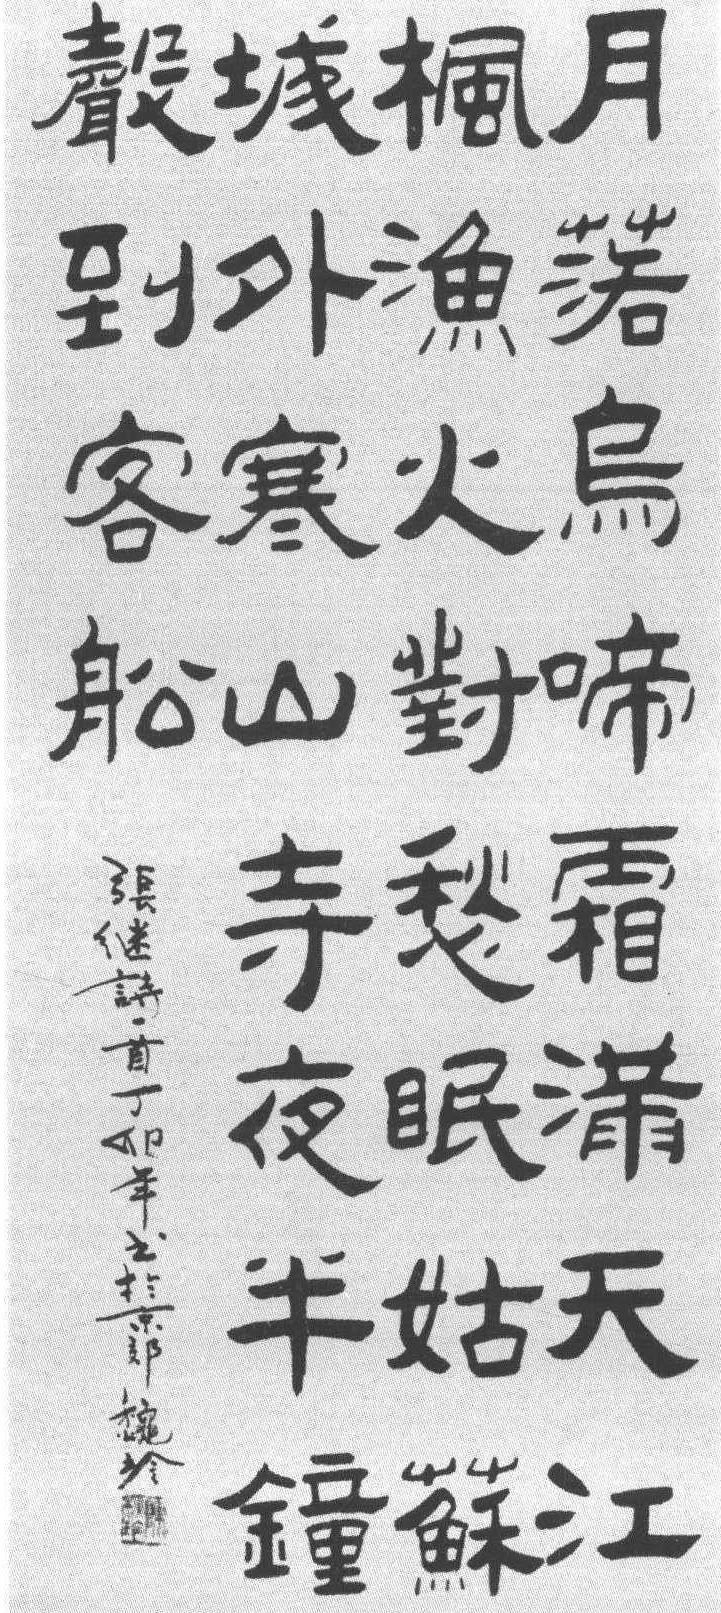 月落烏啼霜滿天江
楓漁火對愁眠姑蘇
城外寒山寺夜半鐘
聲到客船
張继詩一首丁卯年书於京郊